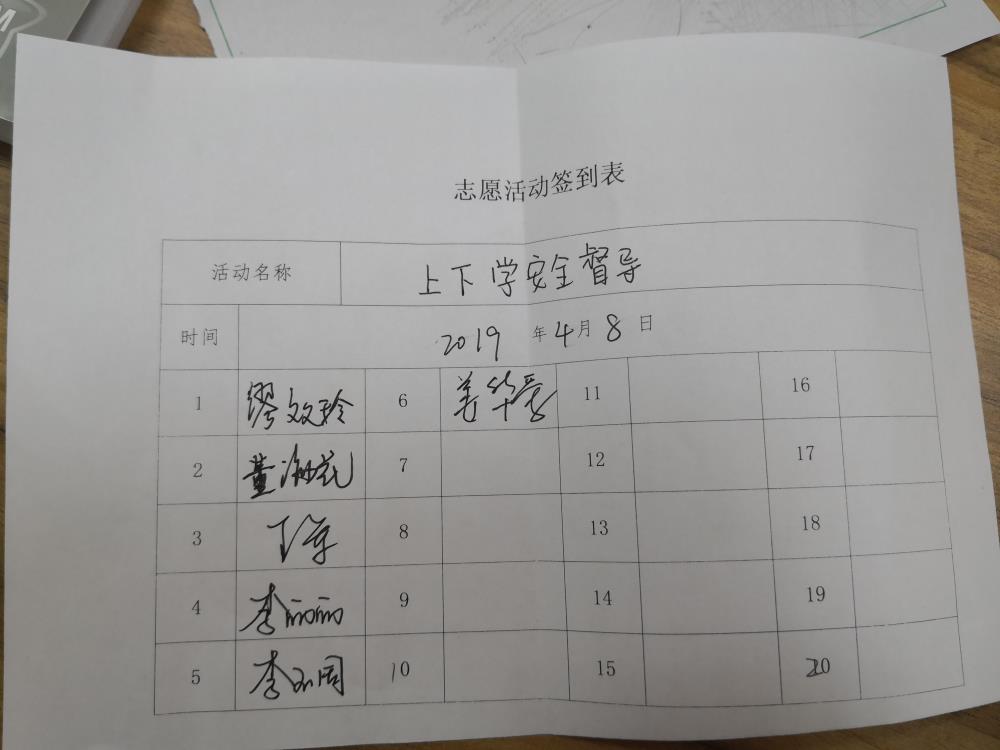 志愿活动签到表
活动名称 上下学安全督导
时间 2019 年 4 月 8 日
1 缪文玲 6 姜华 11 16
2 董海花 7 12 17
3 8 13 18
4 李丽丽 9 14 19
5 李 10 15 20